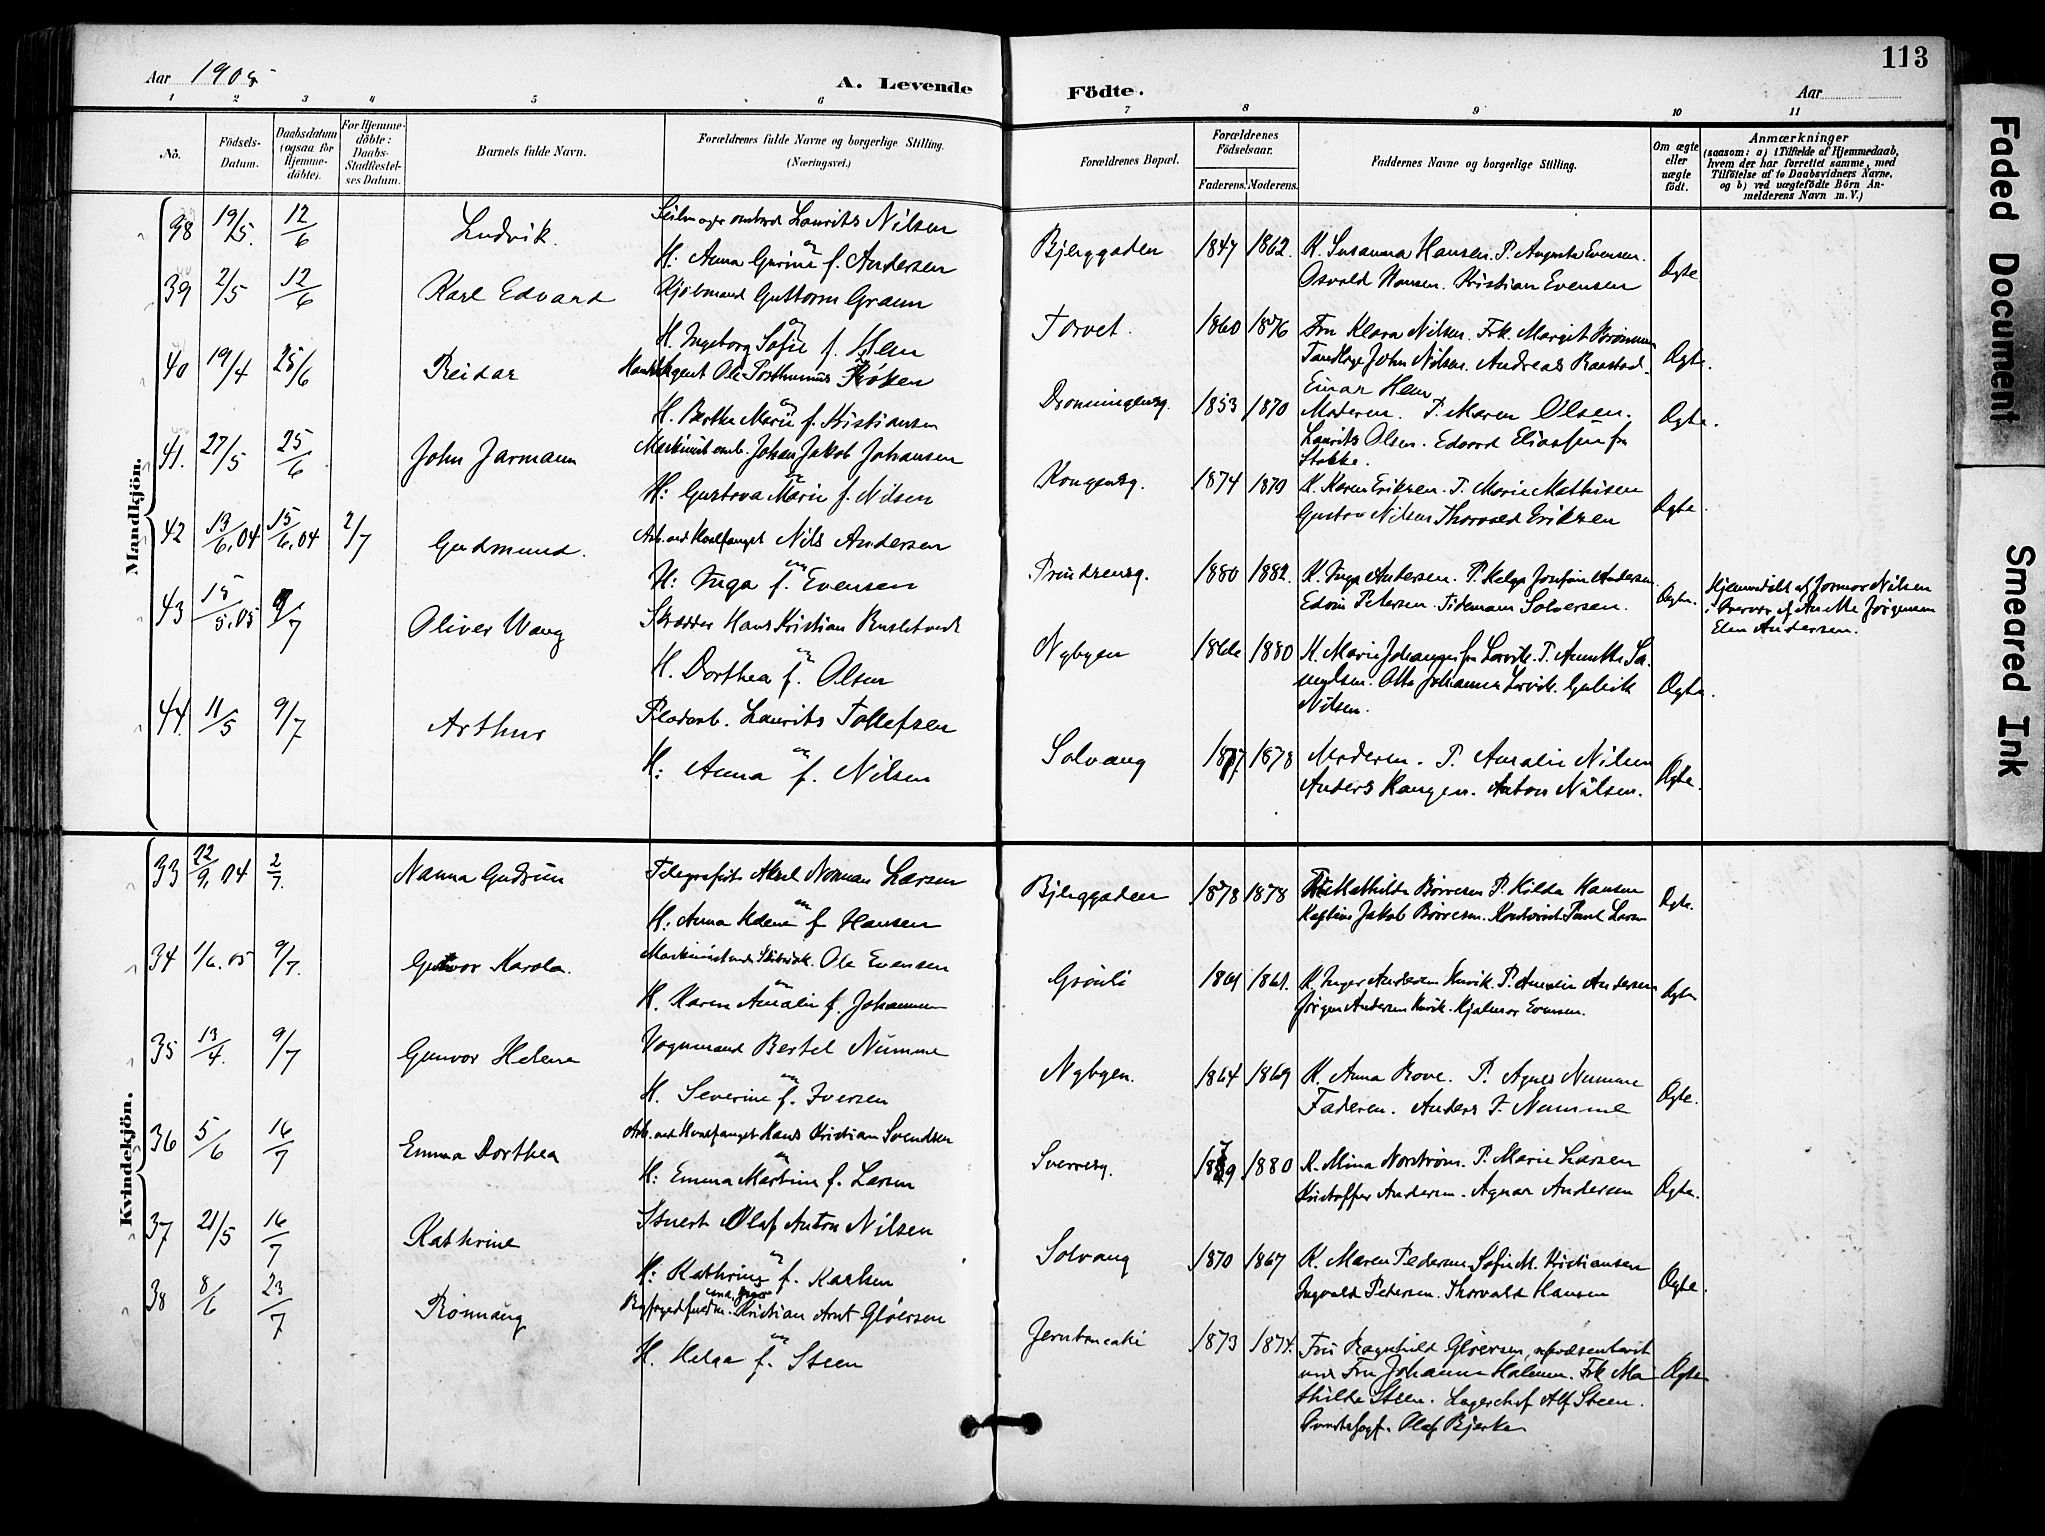 113
Aar 1905
A. Levende
Födte.
Aar
1 2 3 4 5 6 7 8 9 10 11
No.
Födsels-Datum.
Daabsdatum (ogsaa for Hjemme-döbte).
For Hjemme-döbte: Daabs-Stadfæstel-ses Datum.
Barnets fulde Navn.
Forældrenes fulde Navne og borgerlige Stilling. (Næringsvei.)
Forældrenes Bopæl.
Forældrenes Födselsaar.
Faderens. Moderens.
Faddernes Navne og borgerlige Stilling.
Om ægte eller uægte födt.
Anmærkninger (saasom: a) i Tilfælde af Hjemmedaab, hvem der har forrettet samme, med Tilföielse af to Daabsvidners Navne, og b) ved uægtefödte Börn An-melderens Navn m. V.)
Mandkjön.
38 19/5. 12/6 Ludvik. Laurits Nilsen
H: Anna Gurine f. Andersen
Bjerggaden 1847 1862. K. Susanna Hansen. P. Augusta Evensen.
Osvald Hansen. Kristian Evensen Ægte
39 2/5 12/6 Karl Edvard Kjøbmand Guttorm Graum
H. Ingeborg Sofie f. Hem
Torvet. 1860 1876 Fru Klara Nilsen. Frk. Margit
John Nilsen. Andreas Raastad.
Einar Hem Ægte.
40 19/4 25/6 Reidar Agent Ole Posthumus Røken
H. Berthe Marie f. Kristiansen
Dronningensg. 1853 1870 Moderen. P. Maren Olsen.
Laurits Olsen. Edvard Eliassen fra
Stokke. Ægte.
41. 27/5 25/6 John Jarmann Maskinist omb. Johan Jakob Johansen
H: Gustava Marie f. Nilsen
Kongensg. 1874 1870 K. Karen Eriksen. P. Marie Mathisen
Gustav Nilsen Thorvald Eriksen Ægte
42 13/6.04 15/6.04 2/7 Gudmund. Arb. ved Hvalfanget Nils Andersen
H: Inga f. Evensen
Prindsensg. 1880 1882. K. Inga Andersen. P. Helga Josefine Andersen.
Edvin Petersen. Tidemann Solversen. Ægte.
Hjemmedøbt af Jormor Nilsen
i Overvær af Anette Jørgensen
Elen Andersen.
43 15/5.05 9/7 Oliver Wang Skrædder Hans Kristian
H. Dorthea f. Olsen
Nybyen 1866 1880 K. Marie Johannesen fra Larvik. P. Annette Sa-
muelsen. Otto Johannesen Larvik. Gulick
Nilsen. Ægte.
44. 11/5 9/7 Arthur Pladearb. Laurits Tollefsen
H: Anna f. Nilsen
Solvang 1877. 1878 Moderen. P. Amalie Nilsen
Anders Haugen. Anton Nilsen. Ægte.
Kvindekjön.
33 22/9.04 2/7. Nanna Gudrun Telegrafist Aksel Norman Larsen
H: Anna Helene f. Hansen
Bjerggaden 1878 1878 Mathilde Børresen P. Hilda Hansen
Kaptein Jakob Børresen. Kontorist Paul Larsen Ægte.
34 1/6.05 9/7. Gunvor Karola. Maskinist Ole Evensen
H. Karen Amalie f. Johannesen
Grønli 1861 1861. K. Inger Andersen P. Amalie Andersen
Jørgen Andersen Hjalmar Evensen. Ægte
35 13/4. 9/7 Gunvor Helene Vognmand Bertel Numme
H. Severine f. Iversen
Nybyen. 1864 1869 K. Anna Rove. P. Agnes Numme
Faderen. Anders I. Numme Ægte.
36 5/6 16/7 Emma Dorthea Arb. ved Hvalfanget Hans Kristian Svendsen
H: Emma Martine f. Larsen
Sverresg. 1879 1880 K. Mina Norstrøm. P. Marie Larsen
Kristoffer Andersen. Agnar Andersen Ægte.
37 21/5 16/7 Kathrine Stuert Olaf Anton Nilsen
H: Kathrine f. Karlsen
Solvang 1870 1867 K. Maren Pedersen Sofie M. Kristiansen
Ingvald Petersen. Thorvald Hansen Ægte.
38 8/6 23/7 Rønnaug Byfogedfuldm. Kristian Arnt Gløersen
H. Helga f. Steen
Jernbanealle 1873 1874. Fru Ragnhild Gløersen, repræsenteret
ved Fru Johanne Halmen. Frk. Ma-
thilde Steen. Lagerchef Alf Steen.
Olaf Bjerke Ægte
Faded Document
Smeared Ink